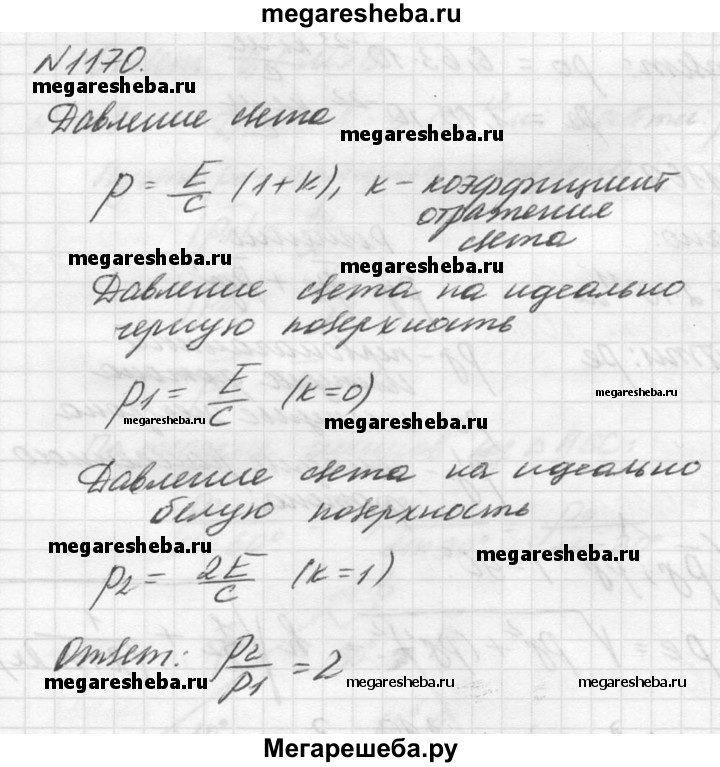 megaresheba.ru
N1170.
megaresheba.ru
Давление света
megaresheba.ru
p = E/c (1+k), k - коэффициент
отражения
света
megaresheba.ru
megaresheba.ru
Давление света на идеально
черную поверхность
p1 = E/c (k=0)
megaresheba.ru
megaresheba.ru
megaresheba.ru
Давление света на идеально
белую поверхность
megaresheba.ru
megaresheba.ru
p2 = 2E/c (k=1)
Ответ: p2/p1 = 2
megaresheba.ru
megaresheba.ru
megaresheba.ru
Мегарешеба.ру